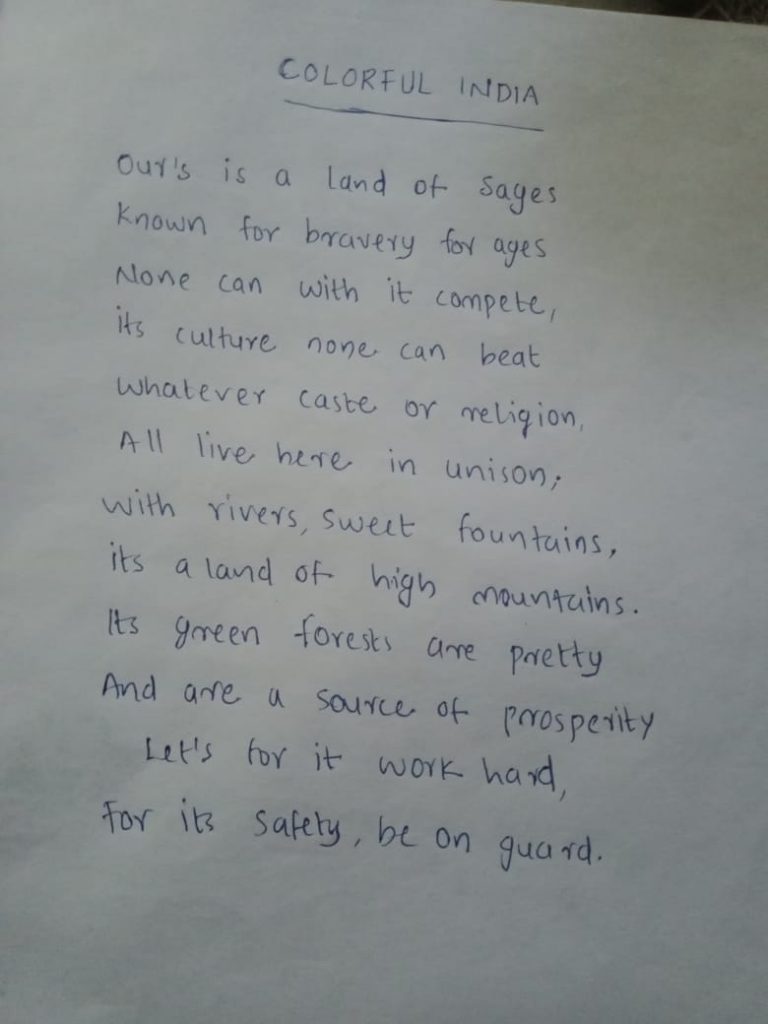 COLORFUL INDIA
Our's is a land of Sages
Known for bravery for ages
None can with it compete,
its culture none can beat
Whatever caste or religion,
All live here in unison;
with rivers, sweet fountains,
its a land of high mountains.
Its green forests are pretty
And are a source of prosperity
Let's for it work hard,
For its safety, be on guard.